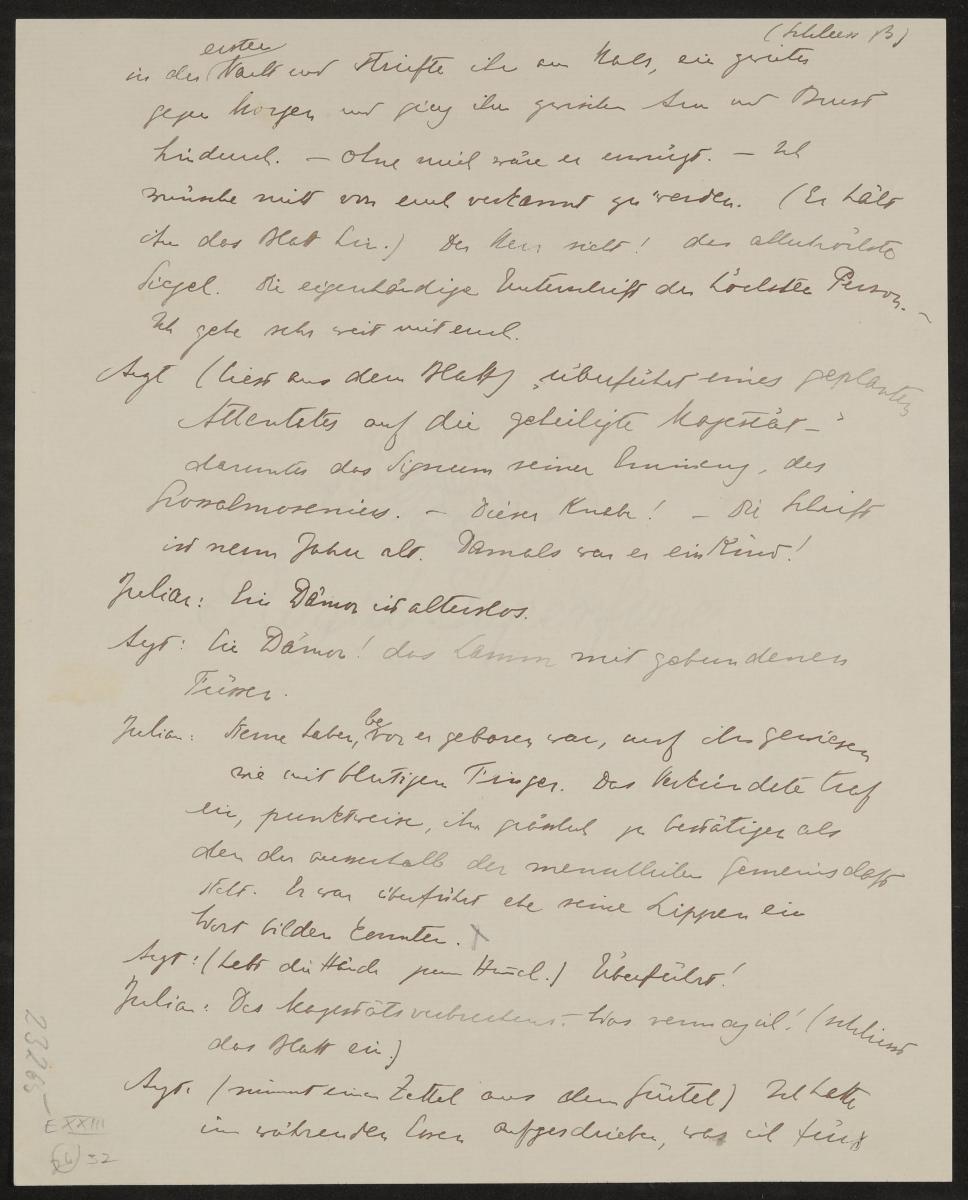 (Schluss B)
ersten
in der Nacht und streifte ihn am Hals, ein zweites
gegen Morgen und ging ihm zwischen Arm und Brust
hindurch. — Ohne mich wäre er erwürgt. — Ich
wünsche nicht von euch verkannt zu werden. (Er hält
ihm das Blatt hin.) Der Herr sieht! das allerhöchste
Siegel. Die eigenhändige Unterschrift der höchsten Person. –
Ich gehe sehr weit mit euch.
Arzt (liest aus dem Blatt) „überführt eines geplanten
Attentates auf die geheiligte Majestät –"
darunter das Signum seiner Eminenz, des
Grossalmoseniers. – Dieser Knabe! – Die Schrift
ist neun Jahre alt. Damals war er ein Kind!
Julian: Ein Dämon ist alterslos.
Arzt: Ein Dämon! das Lamm mit gebundenen
Füssen.
Julian: Sterne haben, bevor er geboren war, auf ihn gewiesen
wie mit blutigen Finger. Das Verkündete traf
ein, punktweise, ihn grässlich zu bestätigen als
den der ausserhalb der menschlichen Gemeinschaft
steht. Er war überführt ehe seine Lippen ein
Wort bilden konnten. X
Arzt: (hebt die Hände zum Himmel.) Überführt!
Julian: Des Majestätsverbrechens. – Was vermag ich! (schliesst
das Blatt ein)
Arzt. (nimmt einen Zettel aus dem Gürtel) Ich hatte
im währenden Essen aufgeschrieben, was ich fürs
23265
E XXIII
24 32